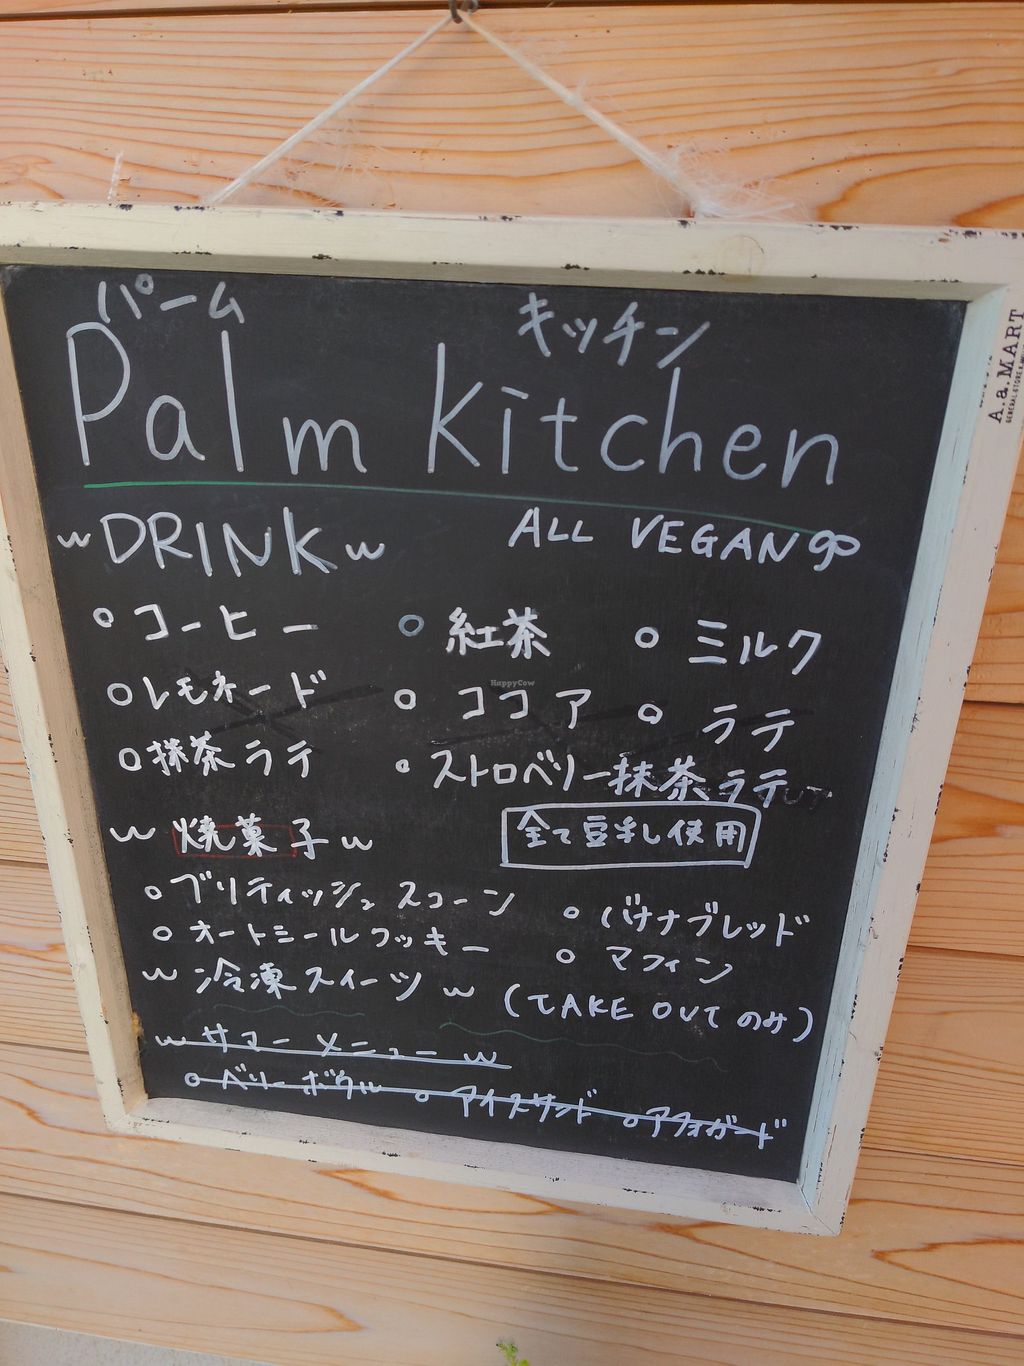 パーム キッチン
Palm Kitchen
DRINK ALL VEGAN
コーヒー 紅茶 ミルク
レモネード ココア ラテ
抹茶ラテ ストロベリー抹茶ラテ
焼菓子 全て豆乳使用
ブリティッシュスコーン バナナブレッド
オートミールクッキー マフィン
冷凍スイーツ (TAKE OUTのみ)
サマーメニュー
ベリーボウル アイスサンド アフォガード
A.a.MART
HappyCow